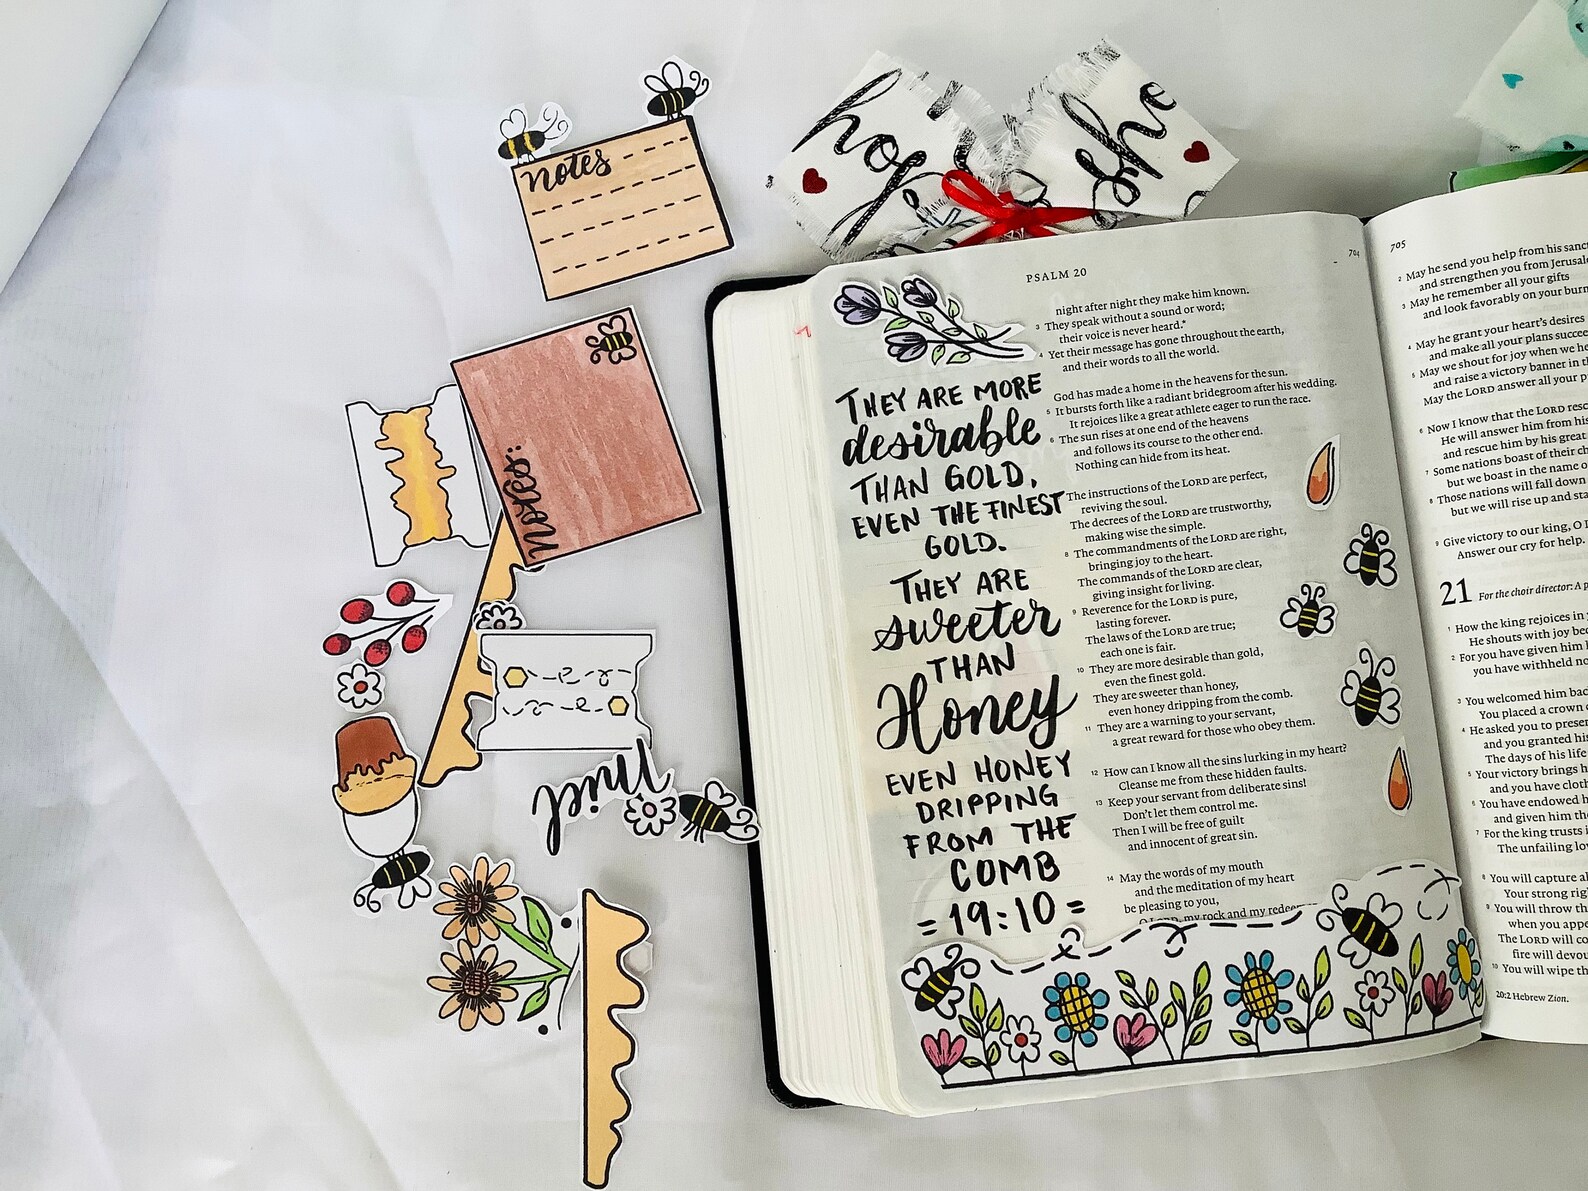 hope
she
notes
notes:
miel
PSALM 20
704
THEY ARE MORE
desirable
THAN GOLD,
EVEN THE FINEST
GOLD.
THEY ARE
sweeter
THAN
Honey
EVEN HONEY
DRIPPING
FROM THE
COMB
=19:10=
night after night they make him known.
3 They speak without a sound or word;
their voice is never heard.*
4 Yet their message has gone throughout the earth,
and their words to all the world.
God has made a home in the heavens for the sun.
5 It bursts forth like a radiant bridegroom after his wedding.
It rejoices like a great athlete eager to run the race.
6 The sun rises at one end of the heavens
and follows its course to the other end.
Nothing can hide from its heat.
The instructions of the LORD are perfect,
reviving the soul.
The decrees of the LORD are trustworthy,
making wise the simple.
8 The commandments of the LORD are right,
bringing joy to the heart.
The commands of the LORD are clear,
giving insight for living.
9 Reverence for the LORD is pure,
lasting forever.
The laws of the LORD are true;
each one is fair.
10 They are more desirable than gold,
even the finest gold.
They are sweeter than honey,
even honey dripping from the comb.
11 They are a warning to your servant,
a great reward for those who obey them.
12 How can I know all the sins lurking in my heart?
Cleanse me from these hidden faults.
13 Keep your servant from deliberate sins!
Don't let them control me.
Then I will be free of guilt
and innocent of great sin.
14 May the words of my mouth
and the meditation of my heart
be pleasing to you,
O LORD, my rock and my
705
2 May he send you help from his
and strengthen you from
3 May he remember all your gifts
and look favorably on your
4 May he grant your heart's desires
and make all your plans
5 May we shout for joy when we
and raise a victory banner in
May the LORD answer all your
6 Now I know that the LORD
He will answer him from
and rescue him by his great
7 Some nations boast of their
but we boast in the name
8 Those nations will fall down
but we will rise up and
9 Give victory to our king, O
Answer our cry for help.
21 For the choir director: A
1 How the king rejoices in
He shouts with joy
2 For you have given him
you have withheld
3 You welcomed him
You placed a crown
4 He asked you to
and you granted
The days of his life
5 Your victory brings
and you have
6 You have endowed
and given him
7 For the king trusts
The unfailing
8 You will capture
Your strong
9 You will throw
when you
The LORD will
fire will
10 You will wipe
20:2 Hebrew Zion.